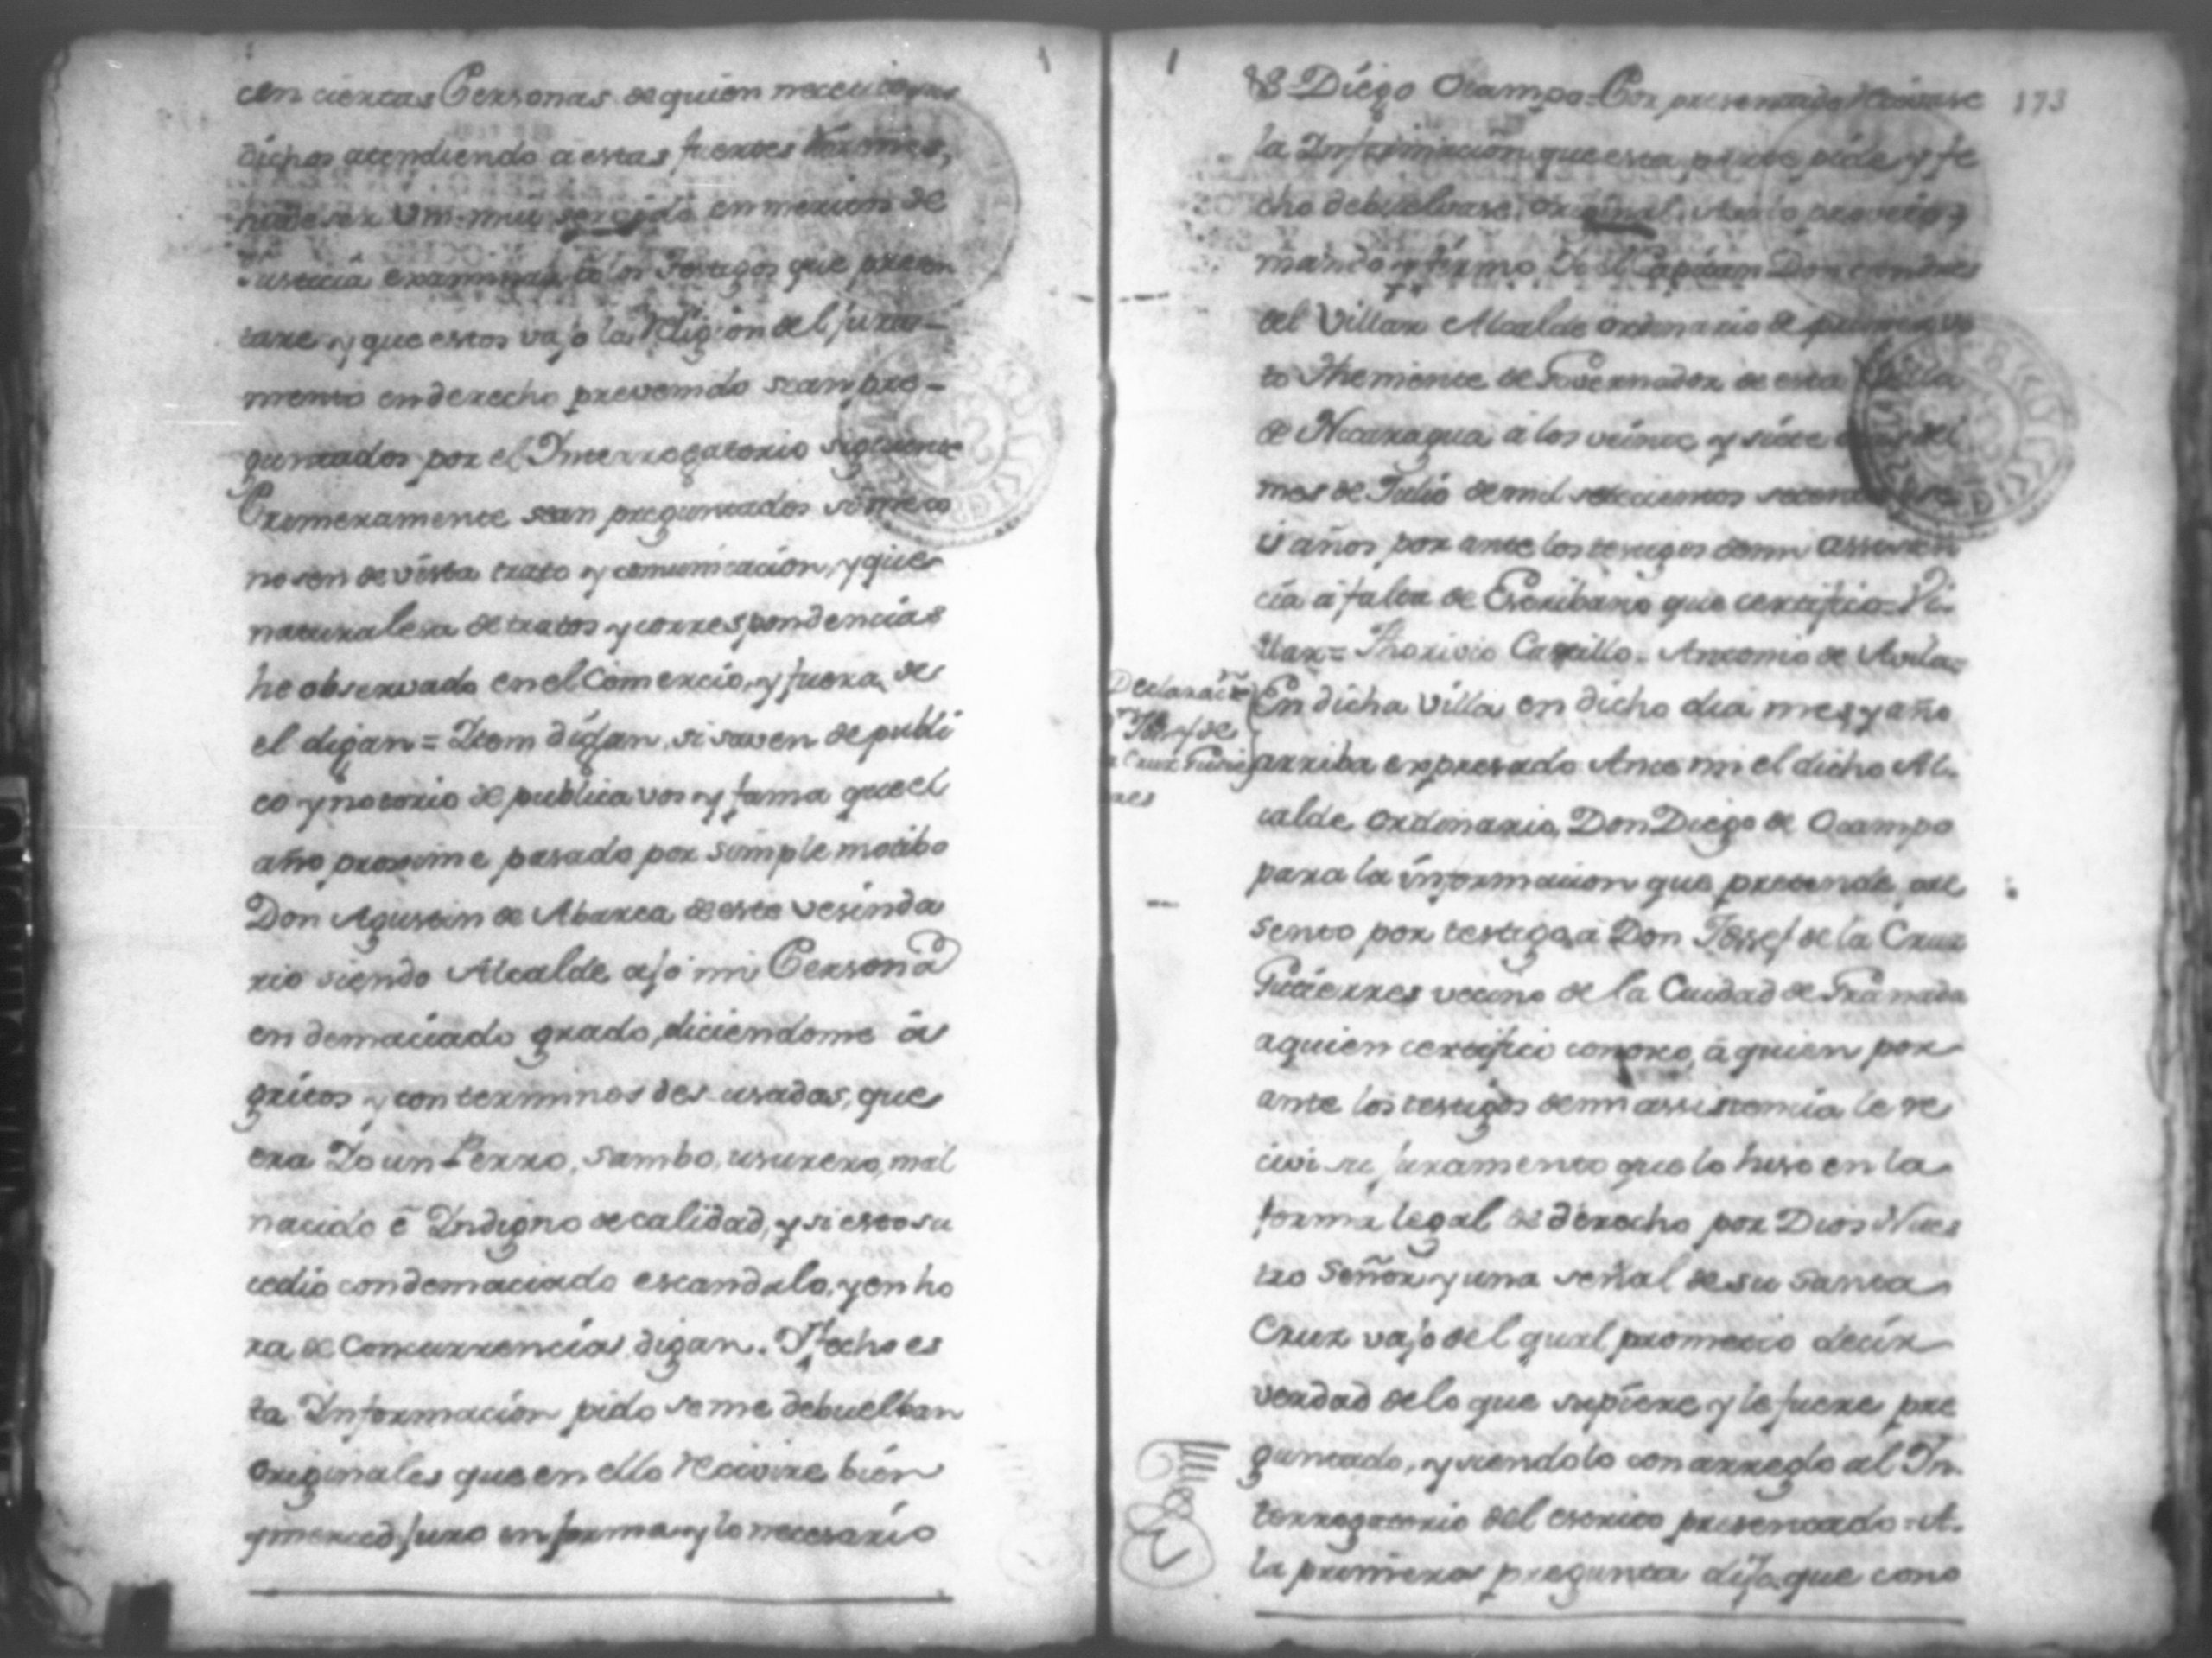 cen ciertas Personas de quien
dichos atendiendo a estas fuertes terminos,
ha de ser Vm. mui servido en meritos de
Justicia examinar a los Testigos que presen
tare, y que estos vajo la Religion del jura-
mento en derecho prevenido sean pre-
guntados por el Interrogatorio siguiente
Primeramente sean preguntados si me co
nosen de vista trato y comunicacion, y que
naturalesa de tratos y correspondencias
he observado en el Comercio, y fuera de
el digan = Item digan si saven de publi
co y notorio de publica vos y fama que el
año proximo pasado por simple motibo
Don Agustin de Abarca de este vesinda
rio siendo Alcalde ajó mi Persona
en demaciado grado, diciendome á
gritos y con terminos des-usadas, que
era Yo un Perro, Sambo, usurero, mal
nacido é Indigno de calidad, y si esto su
cedio con demaciado escandalo, y en ho
ra de Concurrencia digan. Y fecho es
ta Informacion pido se me debuelban
originales que en ello recivire bien
y merced juro en forma y lo necesario
173
Diego Ocampo = Por presentado Recivase
la Informacion que esta parte pide y fe
cho debuelvase original. Asi lo proveió,
mando y firmo Yo el Capitan Don Andres
del Villar Alcalde ordinario de primer vo
to Theniente de Governador de esta Villa
de Nicaragua a los veinte y siete dias del
mes de Julio de mil setecientos setenta y se
is años, por ante los testigos de mi assisten
cia á falta de Escribano que certifico = Vi-
llar = Thorivio Carrillo. Antonio de Avila =
Declaracion
de la Cruz Gutie
rres
En dicha Villa en dicho dia mes y año
arriba expresado Ante mi el dicho Al-
calde ordinario, Don Diego de Ocampo
para la informacion que pretende, pre
sento por testigo, a Don Jossef de la Cruz
Gutierres vecino de la Cuidad de Granada
aquien certifico conosco, á quien por
ante los testigos de mi assistencia le re
civi su juramento que lo hiso en la
forma legal de derecho por Dios Nues
tro Señor, y una señal de su Santa
Cruz vajo del qual prometio decir
verdad de lo que supiere y le fuere pre
guntado, y siendolo con arreglo al In-
terrogatorio del escrito presentado = A-
la primera pregunta dijo que cono